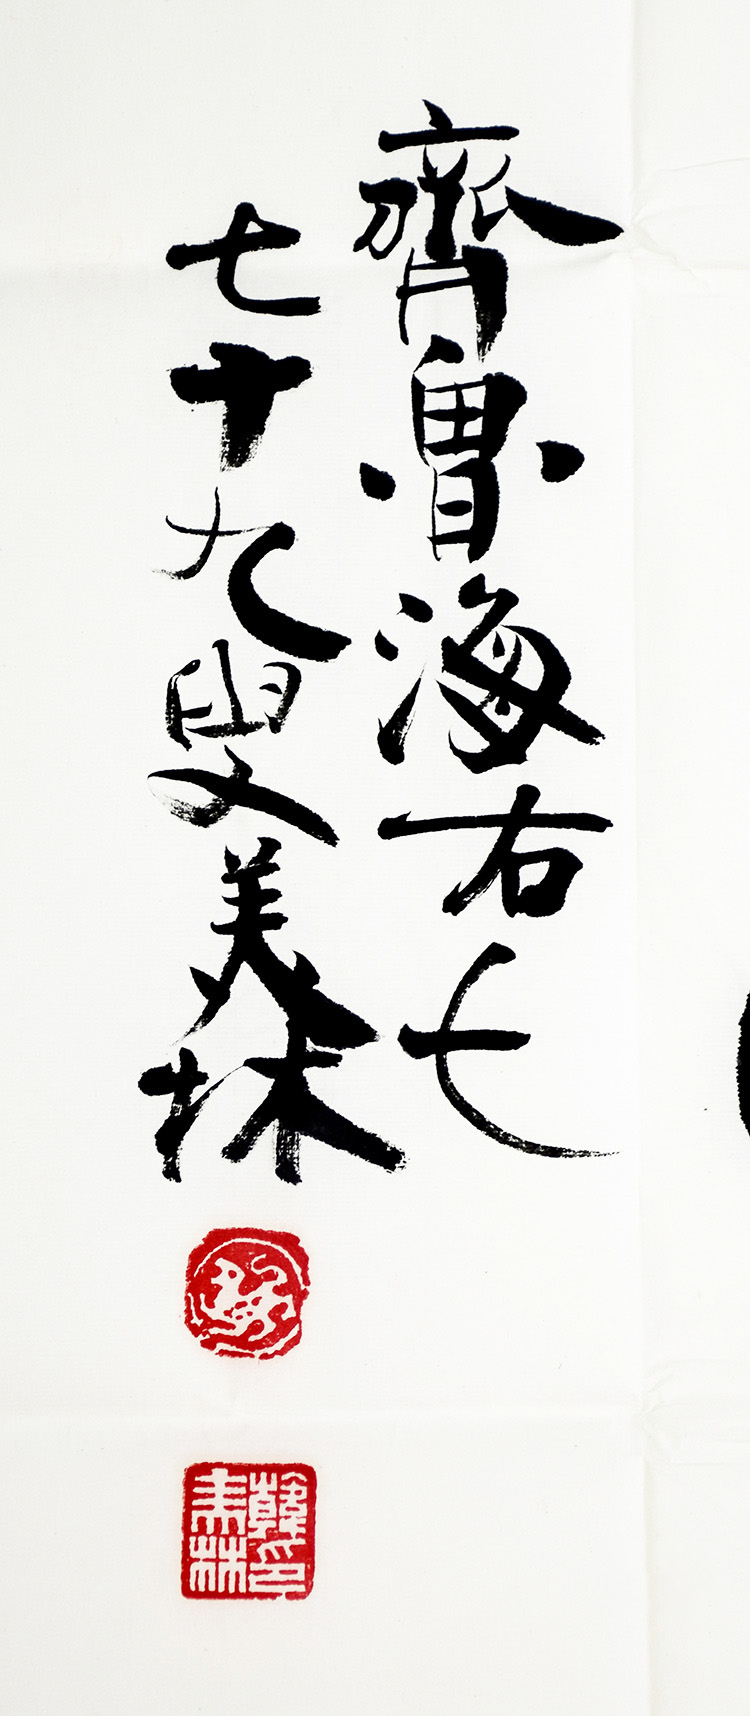 齊魯海右七
七十九叟美林
韓美林印